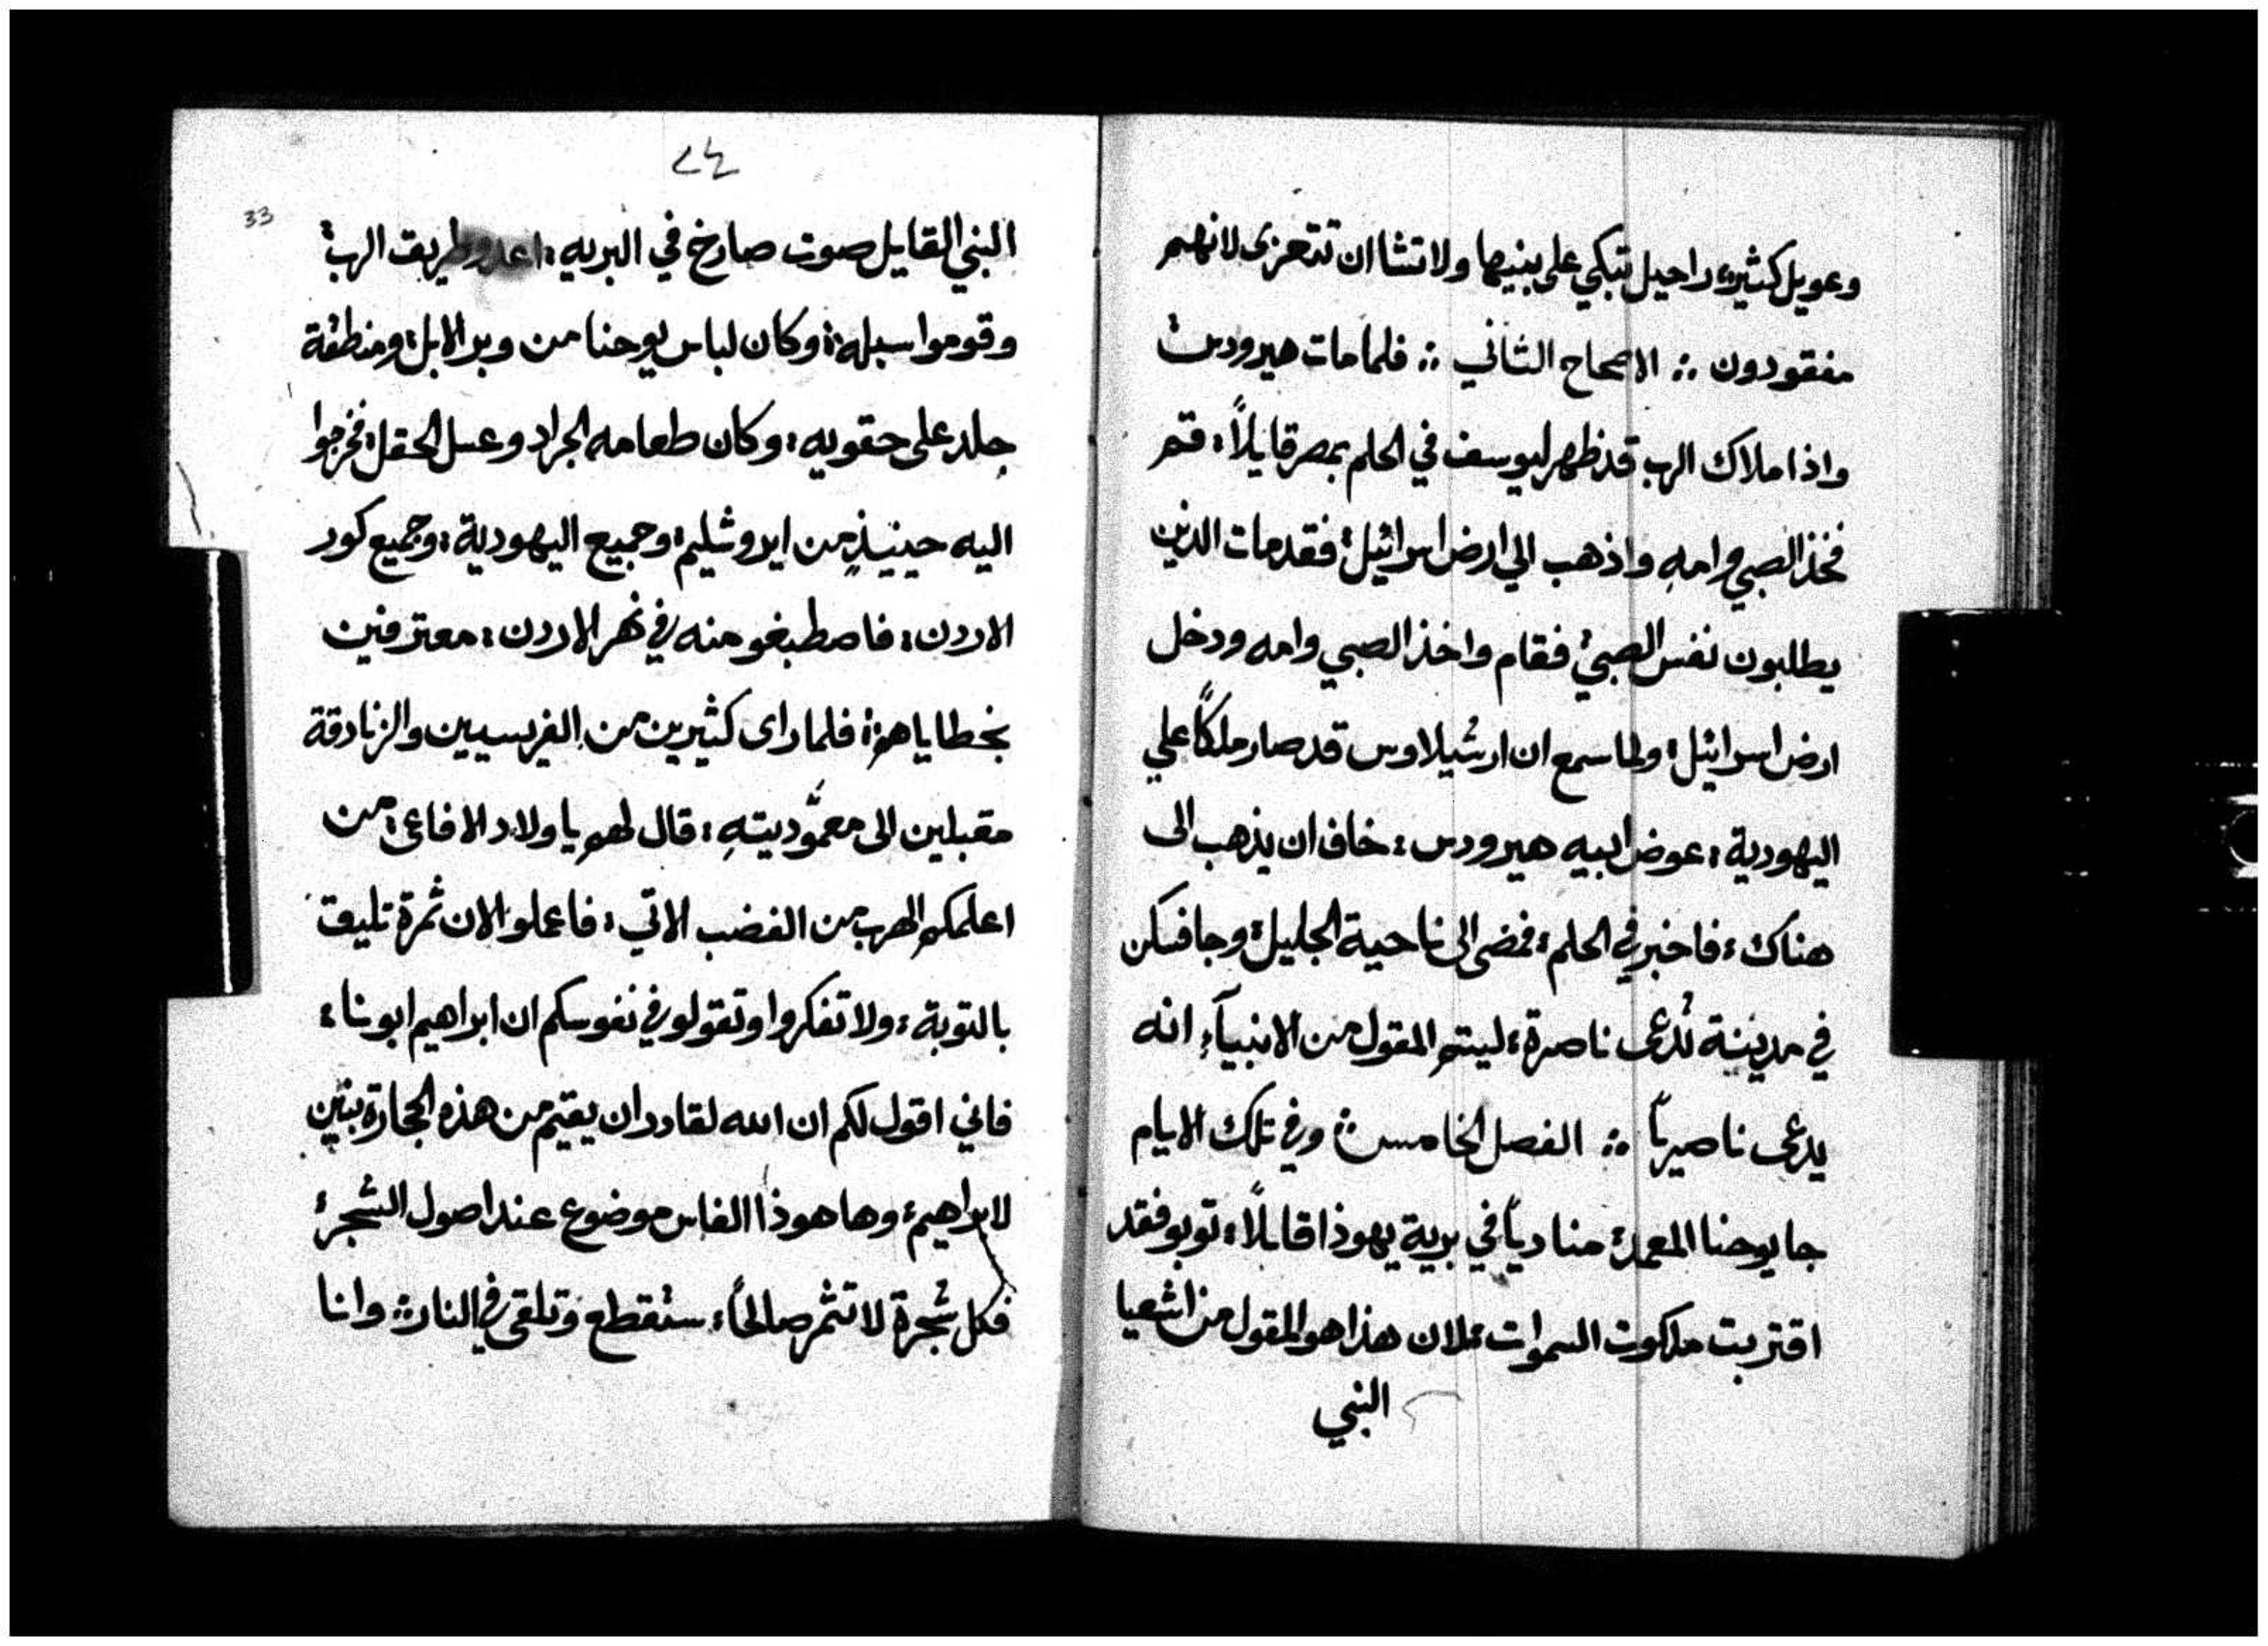 وعويل كثير، راحيل تبكي على بنيها ولا تشا ان تتعزى لانهم
مفقودون ؞ الاصحاح الثاني ؞ فلما مات هيرودس
واذا ملاك الرب قد ظهر ليوسف في الحلم بمصر قايلاً، قم
فخذ الصبي وامه واذهب الي ارض اسرائيل، فقد مات الذين
يطلبون نفس الصبي، فقام واخذ الصبي وامه ودخل
ارض اسرائيل، ولما سمع ان ارشيلاوس قد صار ملكاً علي
اليهودية، عوض ابيه هيرودس، خاف ان يذهب الى
هناك، فاخبر في الحلم، فمضى الى ناحية الجليل، وجا فسكن
في مدينة تُدعى ناصرة، ليتم المقول من الانبيآءِ انه
يدعى ناصيرياً ؞ الفصل الخامس ؞ وفي تلك الايام
جا يوحنا المعمد، منادياً في برية يهوذا قايلاً، توبو فقد
اقتربت ملكوت السموات، لان هذا هو المقول من اشعيا
النبي
٢٤
33
النبي القايل صوت صارخ في البريه، اعدو طريق الرب
وقوموا سبله، وكان لباس يوحنا من وبر الابل، ومنطقة
جلد على حقويه، وكان طعامه الجراد وعسل الحقل، فخرجوا
اليه حينيذٍ من ايروشليم، وجميع اليهودية، وجميع كور
الاردن، فاصطبغو منه في نهر الاردن، معترفين
بخطاياهم، فلما راى كثيرين من الفريسيين والزنادقة
مقبلين الى معمّوديتهِ، قال لهم يا ولاد الافاعى، من
اعلمكم الهرب من الغضب الاتي، فاعملو الان ثمرة تليق
بالتوبة، ولا تفكروا وتقولو في نفوسكم ان ابراهيم ابونا،
فاني اقول لكم ان الله لقادر ان يقيم من هذه الحجارة بنين
لابراهيم، وها هوذا الفاس موضوع عند اصول الشجر،
فكل شجرة لا تثمر صالحاً، ستُقطع وتلقى في النار ؞ وانا